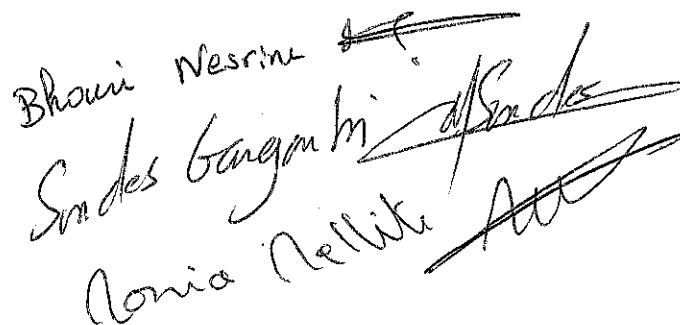 Bhouri Nesrine
Sondes Gargouri Sondes
Monia Melliti